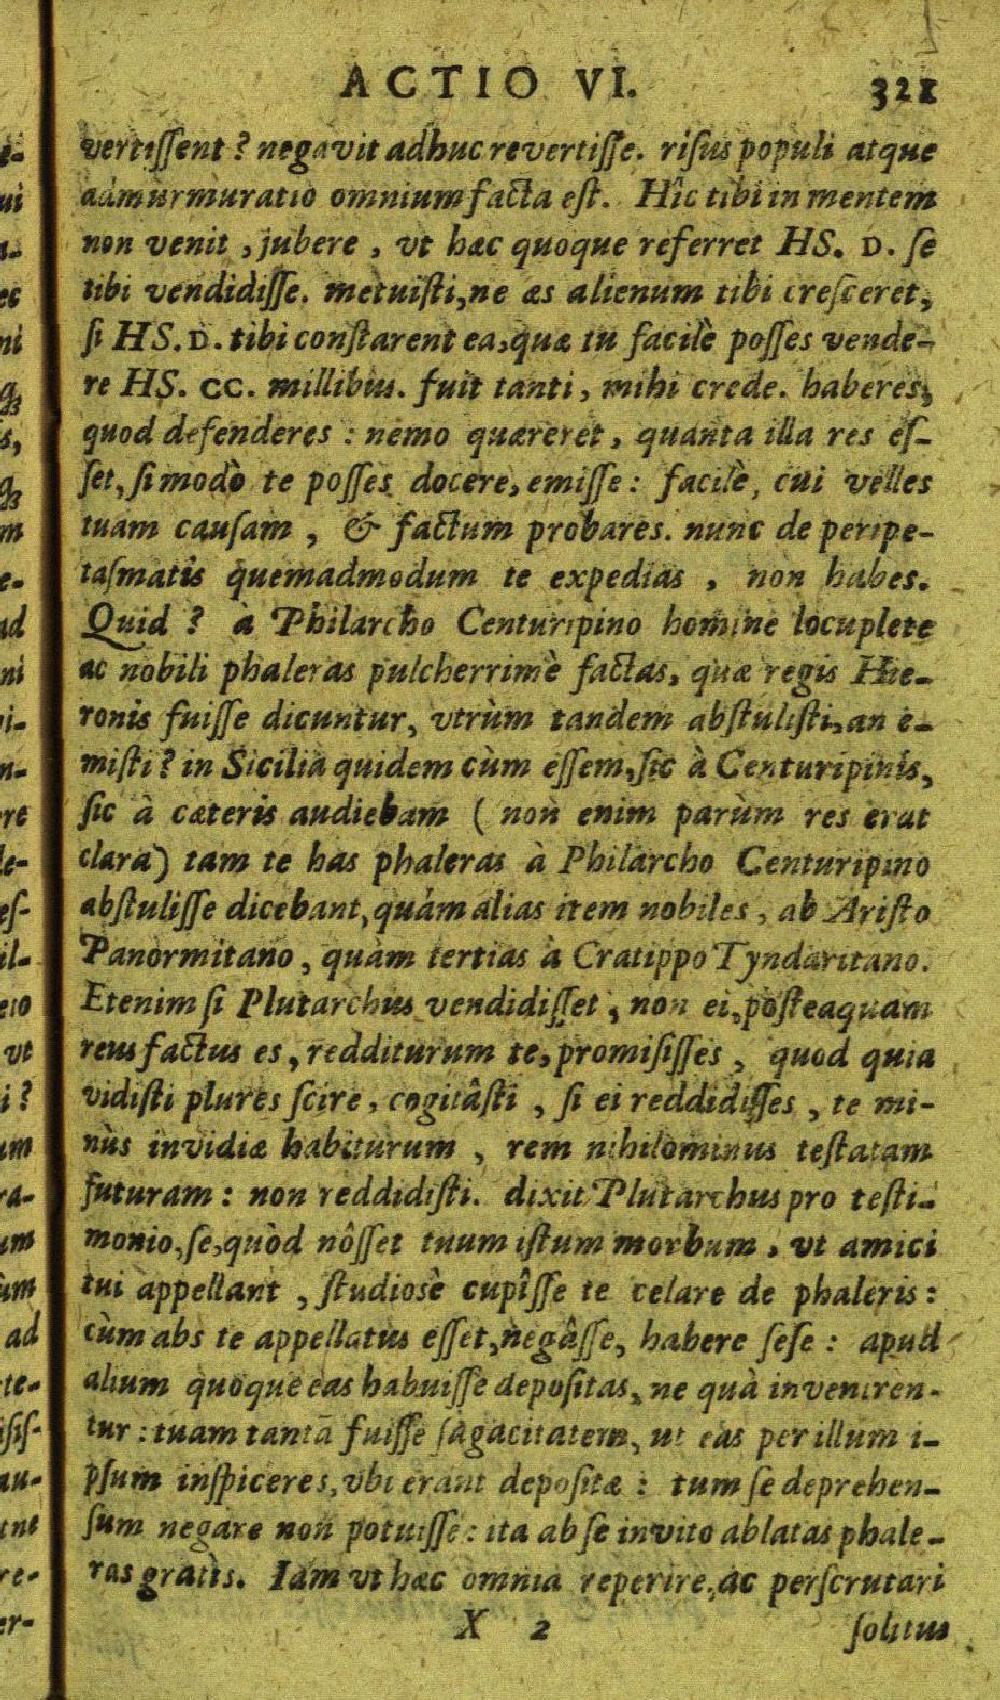 ACTIO VI. 321
vertissent? negavit adhuc revertisse. risus populi atque
admurmuratio omnium facta est. Hîc tibi in mentem
non venit, jubere, vt hæc quoque referret HS. D. se
tibi vendidisse. metuisti, ne æs alienum tibi cresceret,
si HS. D. tibi constarent ea, quæ tu facilè posses vende-
re HS. CC. millibus. fuit tanti, mihi crede. haberes,
quod defenderes: nemo quæreret, quanta illa res es-
set, si modò te posses docere, emisse: facilè, cui velles
tuam causam, & factum probares. nunc de peripe-
tasmatis quemadmodum te expedias, non habes.
Quid? à Philarcho Centuripino homine locuplete
ac nobili phaleras pulcherrimè factas, quæ regis Hie-
ronis fuisse dicuntur, vtrùm tandem abstulisti, an e-
misti? in Sicilia quidem cùm essem, sic à Centuripinis,
sic à cæteris audiebam (non enim parùm res erat
clara) tam te has phaleras à Philarcho Centuripino
abstulisse dicebant, quám alias item nobiles, ab Aristo
Panormitano, quàm tertias à Cratippo Tyndaritano.
Etenim si Plutarchus vendidisset, non ei, posteaquam
reus factus es, redditurum te, promisisses, quod quia
vidisti plures scire, cogitâsti, si ei reddidisses, te mi-
nùs invidiæ habiturum, rem nihilominus testatam
futuram: non reddidisti. dixit Plutarchus pro testi-
monio, se, quòd nôsset tuum istum morbum, vt amici
tui appellant, studiosè cupîsse te celare de phaleris:
cùm abs te appellatus esset, negâsse, habere sese: apud
alium quoque eas habuisse depositas, ne quà inveniren-
tur: tuam tantā fuisse sagacitatem, ut eas per illum i-
psum inspiceres, vbi erant depositæ: tum se deprehen-
sum negare non potuisse: ita ab se invito ablatas phale-
ras gratìs. Iam vt hæc omnia reperire, ac perscrutari
X 2 solitus